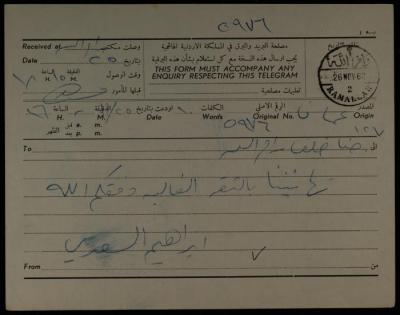 ٥٩٧٦
Received at وصلت مكتب رام الله
مصلحة البريد والبرق في المملكة الاردنية الهاشمية
Date ٢٥ بتاريخ
يجب ارسال هذه النسخة مع كل استعلام بشأن هذه البرقية
H. M. الساعة الدقيقة وقت الوصول
THIS FORM MUST ACCOMPANY ANY
ENQUIRY RESPECTING THIS TELEGRAM
قبلها المأمور
تعليمات مصلحية
26 NOV 62
2
RAMALLAH
H. الساعة M. الدقيقة اودعت بتاريخ Date الكلمات Words ١٠ الرقم الاصلي Original No. ٥٩٧٦ المصدر Origin عمان
الشهر a. m. ق. ظ p. m. ب. ظ
١٢٧
To حنا خلف رام الله الى
تهانينا بالثقة الغالية وفقكم الله
ابراهيم السعدي
From من